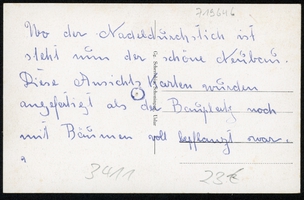 713646
Wo der Nadeldurchstich ist
steht nun der schöne Neubau.
Diese Ansichtskarten wurden
angefertigt als der Bauplatz noch
mit Bäumen voll bepflanzt war.
3411
23€